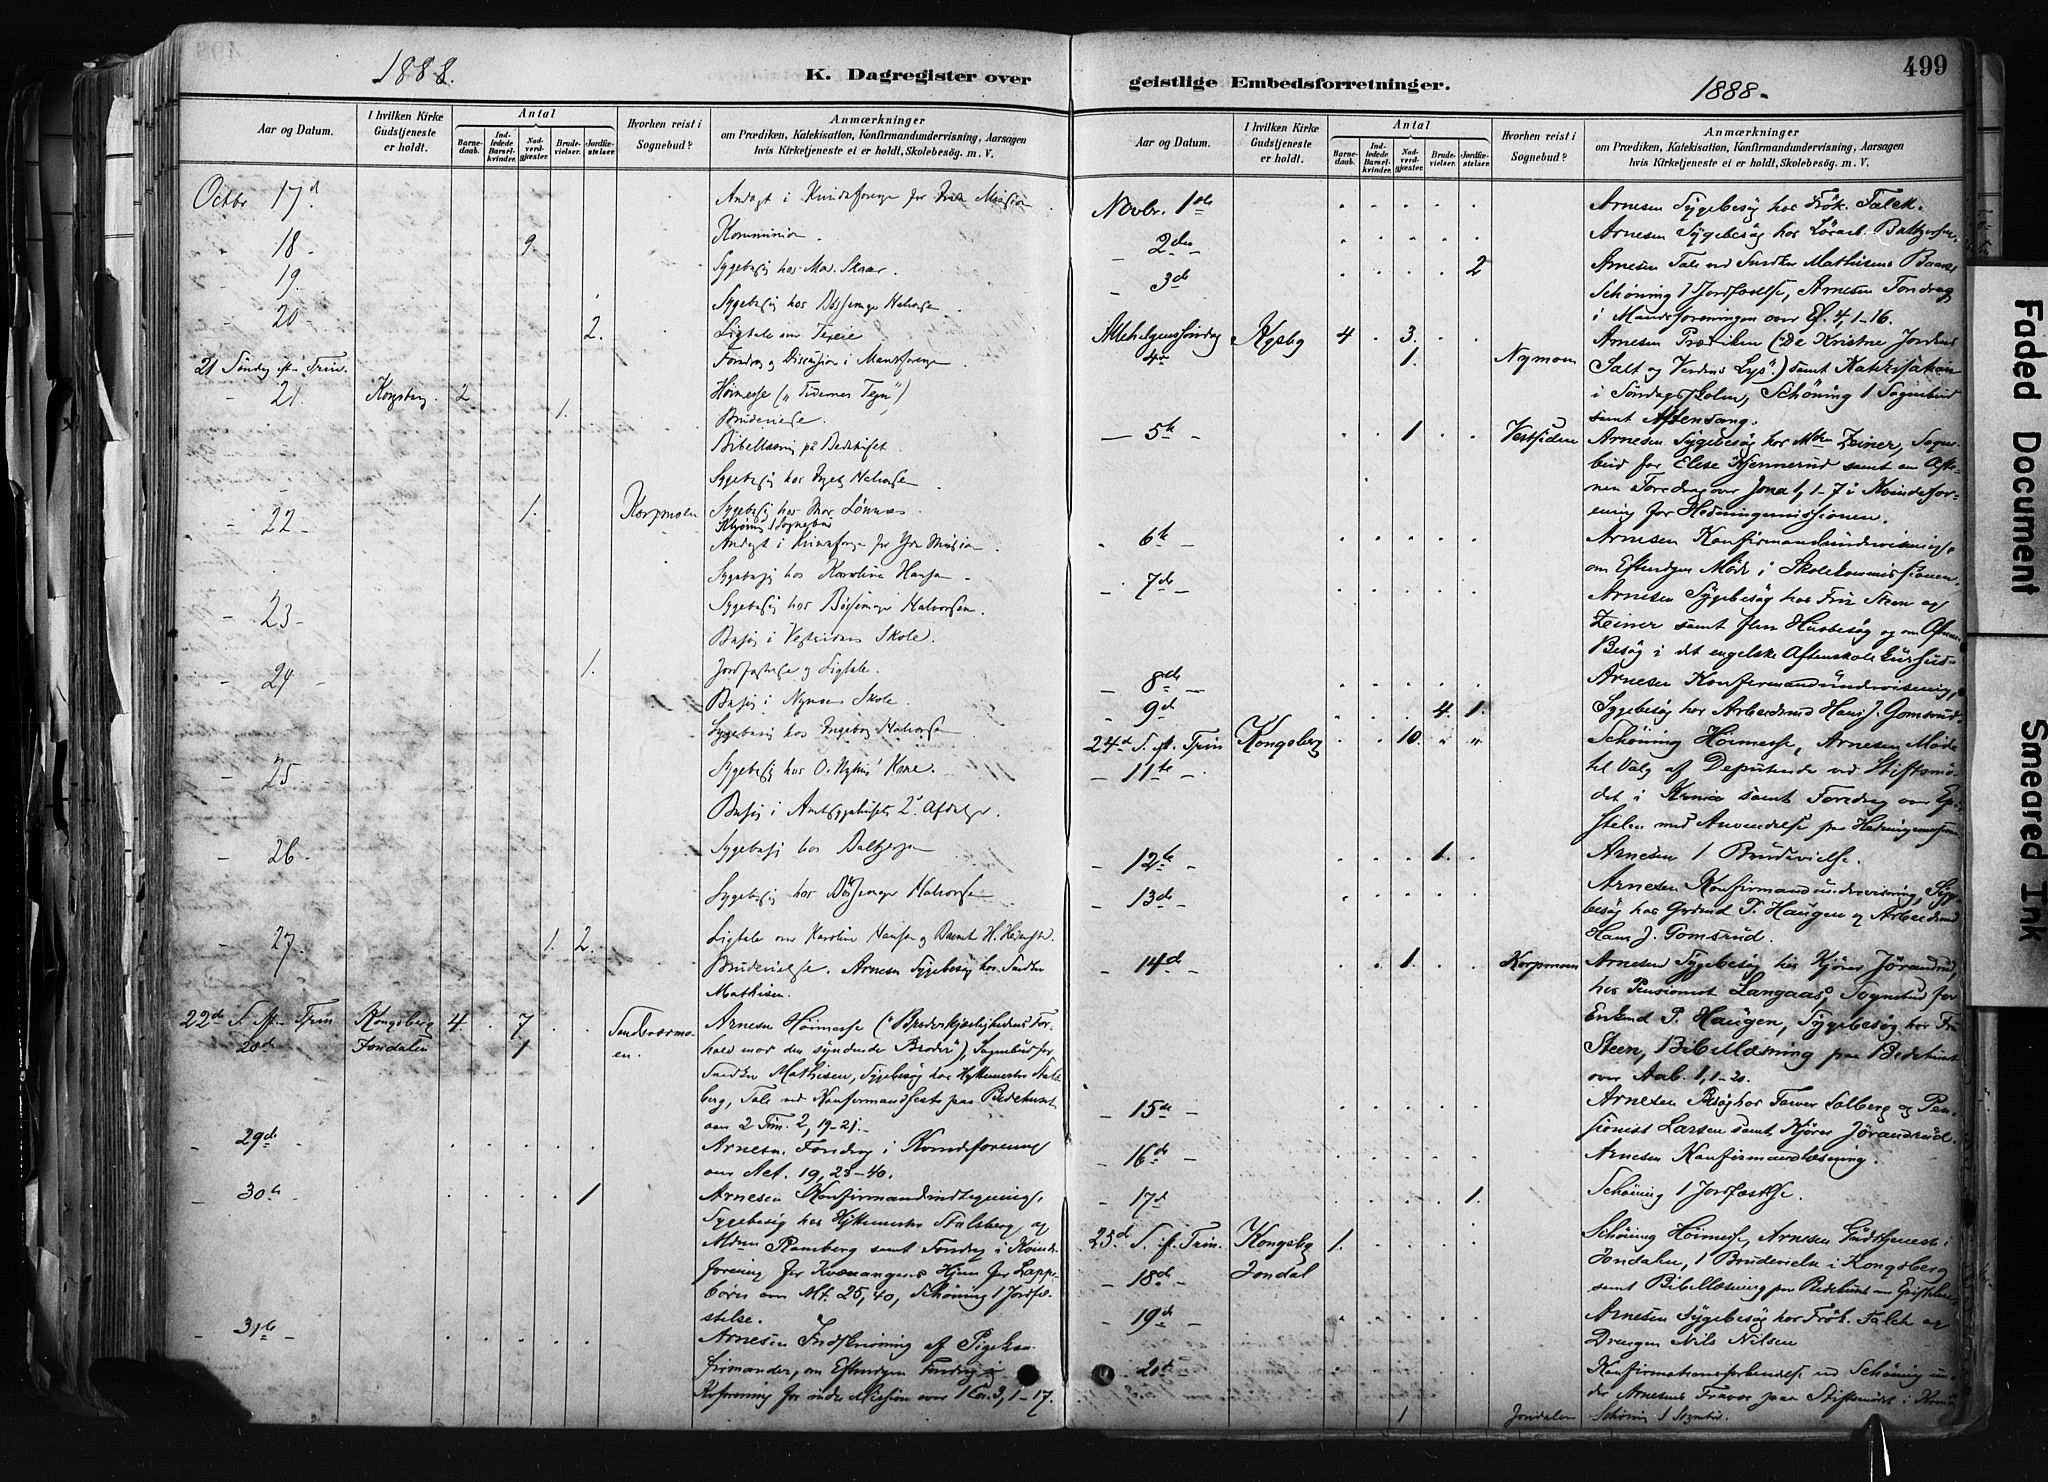 1888.
K. Dagregister over
Aar og Datum.
I hvilken Kirke Gudstjeneste er holdt.
Antal
Barnedaab.
Indledede Barselkvinder.
Nadverdgjæster.
Brudevielser.
Jordfæstelser.
Hvorhen reist i Sognebud?
Anmærkninger
om Prædiken, Katekisation, Konfirmandundervisning, Aarsagen
hvis Kirketjeneste ei er holdt, Skolebesøg. m. V.
Octbr 17d Andagt i Kvindeforenge for Missio
18 - 9 Kommunion.
19. Sygebesøg hos Mad. Skaar.
Sygebesøg hos Halvorsen
20 2. Ligtale over
21 Søndag eftr Trin. Foredrag og Discussion i Mandsforenge
- 21. Kongsberg 2 Høimesse („Tidernes Tegn")
1. Brudevielse.
Bibellæsning på Bedehuset
Sygebesøg hos Halvorsen
- 22 1. Korpmoen Sygebesøg hos Mor. Lønnæs.
Schøning 1 Sognebud
Andagt i Kvindeforenge for Ydre Mission
Sygebesøg hos Karoline Hansen
- 23 Sygebesøg hos Halvorsen.
Besøg i Vestsidens Skole.
- 24 1. Jordfæstelse og Ligtale.
Besøg i Nymoens Skole.
Sygebesøg hos Ingeborg Halvorsen
- 25 Sygebesøg hos O. Kone.
Besøg i 2' Afdelger.
- 26 - Sygebesøg hos Baltzersen
Sygebesøg hos Halvorsen
- 27 1. 2. Ligtale over Karoline Hansen og Barnet H.
Brudevielse. Arnesen Sygebesøg hos Snedker
Mathisen.
22d S. eft. Trin Kongsberg 4 . 7 . . Sandsværmoen. Arnesen Høimesse ("Broderkjærlighedens Forhold
28d Jondalen 1 mod den syndende Broder"), Sognebud for
Snedker Mathisen, Sygebesøg hos Hyttemester Stalsberg,
Tale ved Konfirmandfest paa Bedehuset
over 2 Tim. 2, 19-21.
- 29de - Arnesen Foredrag i Kvindeforening
over Act. 19, 23-40.
- 30te - 1 Arnesen Konfirmandindtegning,
Sygebesøg hos Hyttemester Stalsberg og
Mdm Ramberg samt Foredrag i Kvindeforening
for Kvænangens Hjem for Lappebørn
over Mt. 25, 40, Schøning 1 Jordfæstelse.
- 31te - Arnesen Indskrivning af Pigekonfirmander,
om Eftermdgen Foredrag i
Kvforening for indre Mission over 1 Cor. 3, 1-17.
499
geistlige Embedsforretninger.
1888.
Aar og Datum.
I hvilken Kirke Gudstjeneste er holdt.
Antal
Barnedaab.
Indledede Barselkvinder.
Nadverdgjæster.
Brudevielser.
Jordfæstelser.
Hvorhen reist i Sognebud?
Anmærkninger
om Prædiken, Katekisation, Konfirmandundervisning, Aarsagen
hvis Kirketjeneste ei er holdt, Skolebesøg. m. V.
Novbr. 1ste Arnesen Sygebesøg hos Frøk. Falck.
- 2den Arnesen Sygebesøg hos Baltzersen.
- 3d 2 Arnesen Tale ved Snedker Mathisens Baare,
Schøning 1 Jordfæstelse, Arnesen Foredrag
i Mandsforeningen over Ef. 4, 1-16.
Allehelgenssøndag Kgsbg 4 . 3. . . Arnesen Prædiken ("De Kristne Jordens
4de 1. Nymoen Salt og Verdens Lys") samt Katekisation
i Søndagsskolen, Schøning 1 Sognebud
samt Aftensang.
- 5te - 1 Vestsiden Arnesen Sygebesøg hos Mdm Zeiner, Sognebud
for Elise Kjennerud samt om Aftenen
Foredrag over Jona 1, 1-7 i Kvindeforening
for Hedningemissionen.
- 6te - Arnesen Konfirmandundervisning,
om Eftermdgen Møde i Skolekommissionen.
- 7de - Arnesen Sygebesøg hos Fru Steen og
Zeiner samt flere Husbesøg og om Aftenen
Besøg i det engelske Aftenskole
- 8de - Arnesen Konfirmandundervisning,
- 9d 4. 1. Sygebesøg hos Arbeidsmd Hans J. Gomsrud.
24d S. eft. Trin Kongsberg . . 10. " " Schøning Høimesse, Arnesen Møde
- 11te - til Valg af Deputerede ved Stiftsmødet
i Kr.nia samt Foredrag over Epistelen
med Anvendelse paa Hedningemissionen
- 12te - 1. Arnesen 1 Brudevielse.
- 13de - Arnesen Konfirmandundervisning, Sygebesøg
hos P. Haugen og Arbeidsmd
Hans J. Gomsrud.
- 14de - 1. Korpmoen Arnesen Sygebesøg hos Kjører Jørandrud,
hos Pensionist Langaas, Sognebud for
Enkemd P. Haugen, Sygebesøg hos Fru
Steen, Bibellæsning paa Bedehuset
over Aab. 1, 1-20.
- 15de - Arnesen Besøg hos Farver Solberg og Pensionist
Larsen samt Kjører Jørandrud.
- 16de - Arnesen Konfirmandlæsning.
- 17d 1. Schøning 1 Jordfæstelse.
25d S. eft. Trin. Kongsbg 1. Schøning Høimesse, Arnesen Gudstjeneste i
- 18de - Jondal Jondalen, 1 Brudevielse i Kongsberg
samt Bibellæsning paa Bedehuset over Epistelen.
- 19de Arnesen Sygebesøg hos Frøk. Falck og
Drengen Nils Nilsen
- 20de Konfirmationsforberedelse ved Schøning under
Arnesens Fravær paa Stiftsmødet i Kr.nia
1 Jondalen Schøning 1 Sognebud.
Faded Document
Smeared Ink